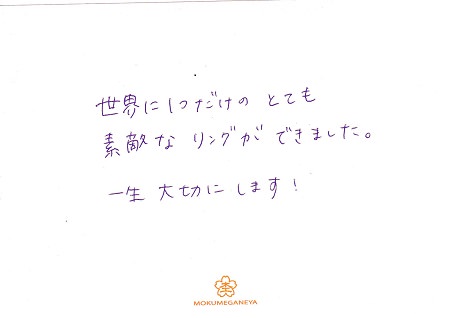 世界に1つだけの とても
素敵な リングが できました。
一生 大切に します!
MOKUMEGANEYA